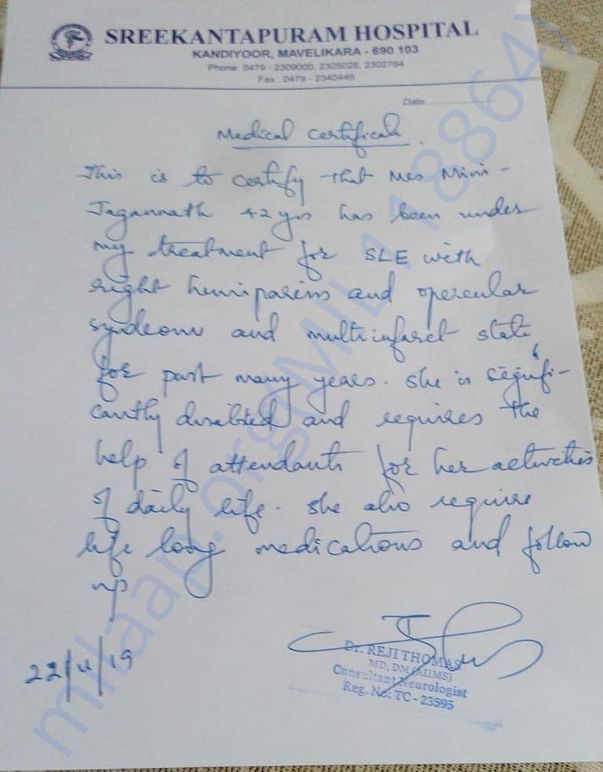 SREEKANTAPURAM HOSPITAL
KANDIYOOR, MAVELIKARA - 690 103
Phone: 0479 - 2309000, 2305026, 2302764
Fax : 0479 - 2340446
Date
Medical Certificate
This is to certify that Mrs Mini -
Jagannath 42 yrs has been under
my treatment for SLE with
right hemiparesis and opercular
syndrome and multiinfarct state
for past many years. She is signifi-
cantly disabled and requires the
help of attendants for her activities
of daily life. She also require
life long medications and follow
up
22/4/19
Dr. REJI THOMAS
MD, DM (AIIMS)
Consultant Neurologist
Reg. No: TC - 23595